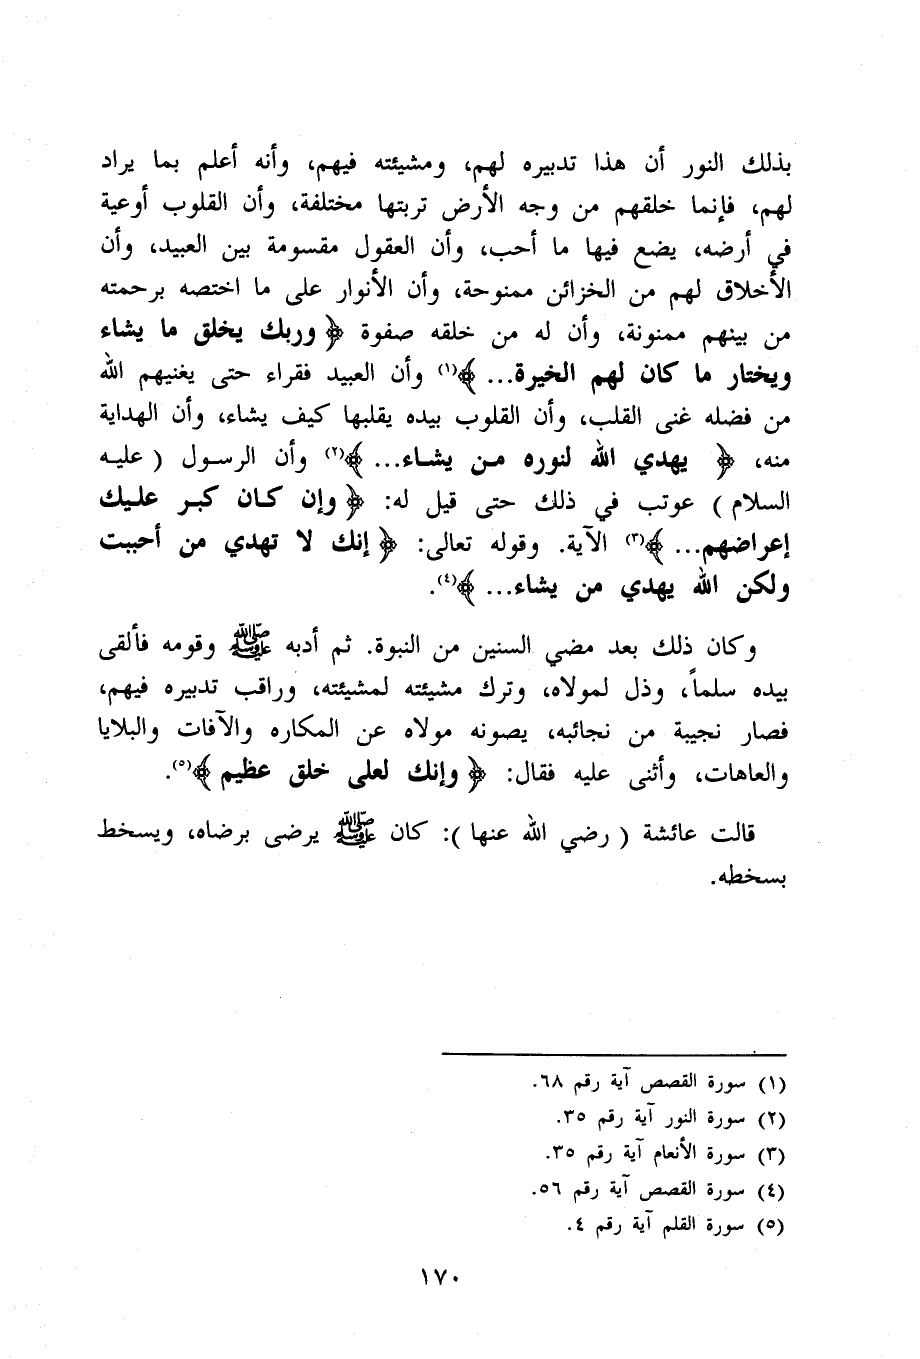 بذلك النور أن هذا تدبيره لهم، ومشيئته فيهم، وأنه أعلم بما يراد
لهم، فإنما خلقهم من وجه الأرض تربتها مختلفة، وأن القلوب أوعية
في أرضه، يضع فيها ما أحب، وأن العقول مقسومة بين العبيد، وأن
الأخلاق لهم من الخزائن ممنوحة، وأن الأنوار على ما اختصه برحمته
من بينهم ممنونة، وأن له من خلقه صفوة ﴿ وربك يخلق ما يشاء
ويختار ما كان لهم الخيرة... ﴾(١) وأن العبيد فقراء حتى يغنيهم الله
من فضله غنى القلب، وأن القلوب بيده يقلبها كيف يشاء، وأن الهداية
منه، ﴿ يهدي الله لنوره من يشاء... ﴾(٢) وأن الرسول ( عليه
السلام ) عوتب في ذلك حتى قيل له: ﴿ وإن كان كبر عليك
إعراضهم... ﴾(٣) الآية. وقوله تعالى: ﴿ إنك لا تهدي من أحببت
ولكن الله يهدي من يشاء... ﴾(٤).
وكان ذلك بعد مضي السنين من النبوة. ثم أدبه ﷺ وقومه فألقى
بيده سلماً، وذل لمولاه، وترك مشيئته لمشيئته، وراقب تدبيره فيهم،
فصار نجيبة من نجائبه، يصونه مولاه عن المكاره والآفات والبلايا
والعاهات، وأثنى عليه فقال: ﴿ وإنك لعلى خلق عظيم ﴾(٥).
قالت عائشة ( رضي الله عنها ): كان ﷺ يرضى برضاه، ويسخط
بسخطه.
(١) سورة القصص آية رقم ٦٨.
(٢) سورة النور آية رقم ٣٥.
(٣) سورة الأنعام آية رقم ٣٥.
(٤) سورة القصص آية رقم ٥٦.
(٥) سورة القلم آية رقم ٤.
١٧٠